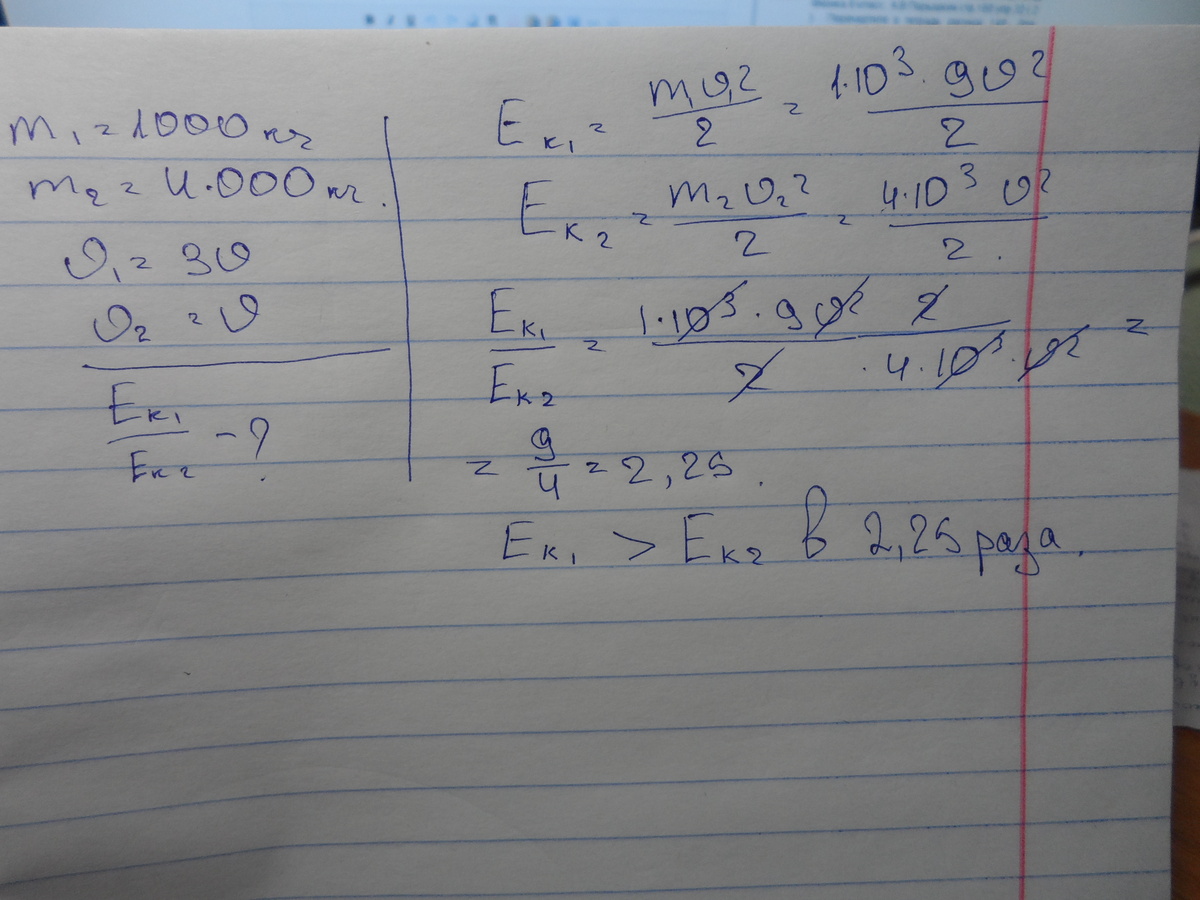 m₁ = 1000 кг
m₂ = 4.000 кг.
υ₁ = 3υ
υ₂ = υ
Eк₁/Eк₂ - ?
Eк₁ = m₁υ₁²/2 = 1·10³·9υ²/2
Eк₂ = m₂υ₂²/2 = 4·10³ υ²/2.
Eк₁/Eк₂ = 1·10³·9υ²/2 · 2/4·10³·υ² =
= 9/4 = 2,25.
Eк₁ > Eк₂ в 2,25 раза.